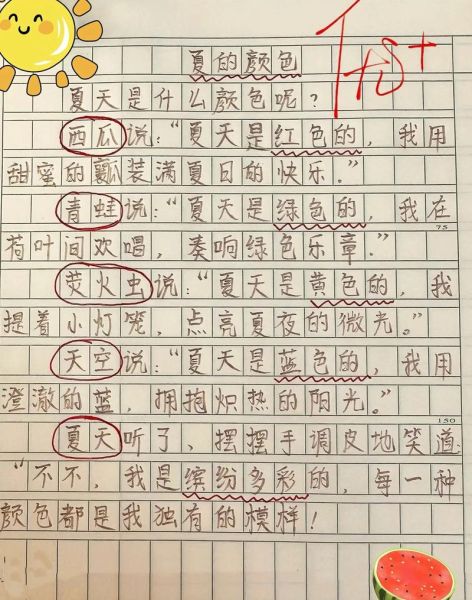 夏的颜色
夏天是什么颜色呢？
西瓜说：“夏天是红色的，我用
甜蜜的瓤装满夏日的快乐。”
青蛙说：“夏天是绿色的，我在
75
荷叶间欢唱，奏响绿色乐章。”
萤火虫说：“夏天是黄色的，我
提着小灯笼，点亮夏夜的微光。”
天空说：“夏天是蓝色的，我用
澄澈的蓝，拥抱炽热的阳光。”
150
夏天听了，摆摆手调皮地笑道：
“不不，我是缤纷多彩的，每一种
颜色都是我独有的模样！